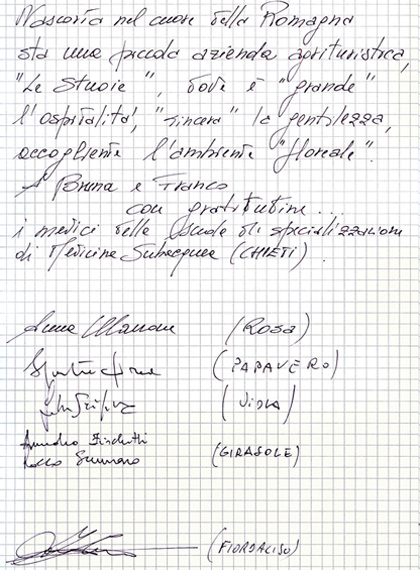 Nascosta nel cuore della Romagna
sta una piccola azienda agrituristica,
"Le Stuoie", dove è "grande"
l'ospitalità, "sincera" la gentilezza,
accogliente l'ambiente "floreale".
A Bruna e Franco
con gratitudine..
i medici della Scuola di specializzazione
di Medicina Subacquea (CHIETI).
Anna (ROSA)
(PAPAVERO)
(VIOLA)
Amedeo
Rocco (GIRASOLE)
(FIORDALISO)